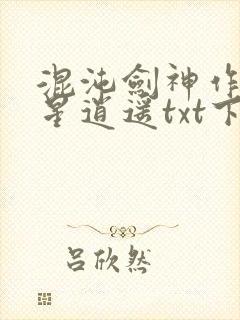 混沌剑神作
星逍遥txt下
吕欣然